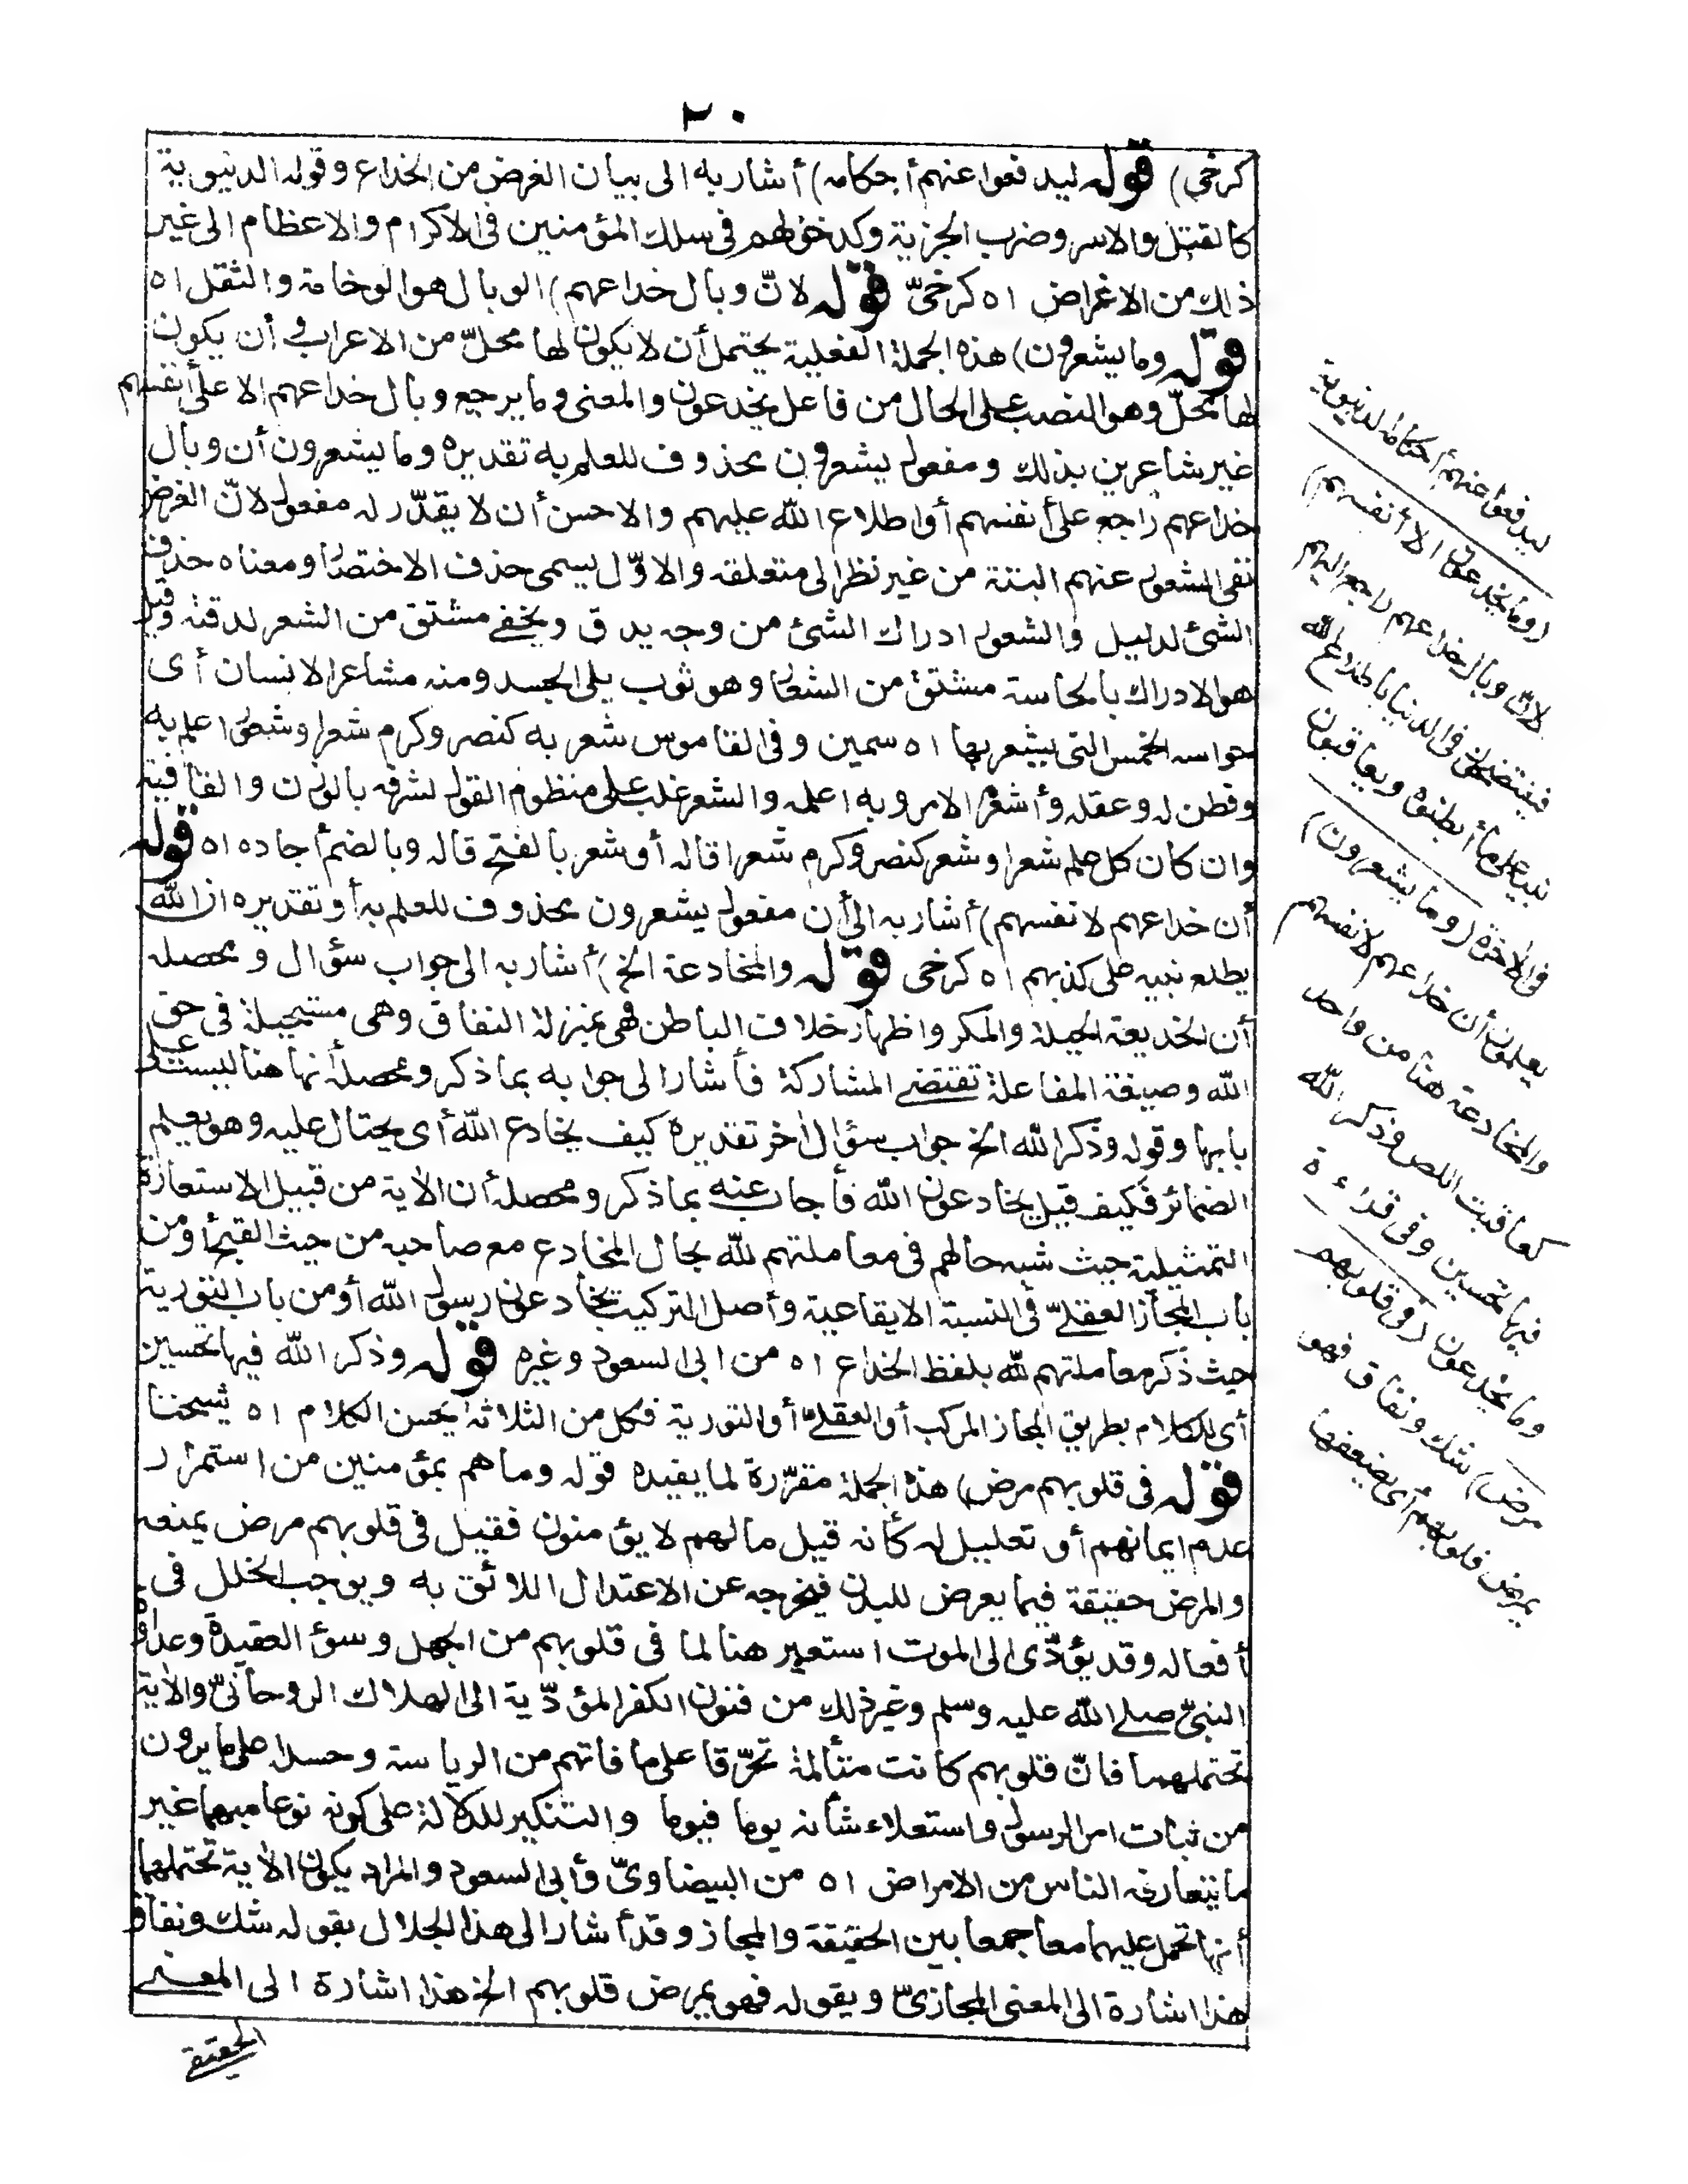 ٢٠
كرخى) قوله ليدفعوا عنهم أحكامه) أشار به الى بيان الغرض من الخداع وقوله الدنيوية
كالقتل والاسر وضرب الجزية وكدخولهم فى سلك المؤمنين فى الاكرام والاعظام الى غير
ذلك من الاغراض اه كرخىّ قوله لانّ وبال خداعهم) الوبال هو الوخامة والثقل اه
قوله وما يشعرون) هذه الجملة الفعلية يحتمل أن لا يكون لها محلّ من الاعراب وأن يكون
لها محلّ وهو النصب على الحال من فاعل يخدعون والمعنى وما يرجع وبال خداعهم الا على أنفسهم
غير شاعرين بذلك ومفعول يشعرون محذوف للعلم به تقديره وما يشعرون أن وبال
خداعهم راجع على أنفسهم أو اطلاع الله عليهم والاحسن أن لا يقدّر له مفعول لانّ الغرض
نفى الشعور عنهم البتة من غير نظر الى متعلقه والاوّل يسمى حذف الاختصار ومعناه حذف
الشئ لدليل والشعور ادراك الشئ من وجه يدق ويخفى مشتق من الشعر لدقته وقيل
هو الادراك بالحاسة مشتق من الشعار وهو ثوب يلى الجسد ومنه مشاعر الانسان أى
حواسه الخمس التى يشعر بها اه سمين وفى القاموس شعر به كنصر وكرم شعرا وشعورا علم به
وفطن له وعقله وأشعره الامر وبه اعلمه والشعر غلب على منظوم القول لشرفه بالوزن والقافية
وان كان كل علم شعرا وشعر كنصر وكرم شعرا قاله أو شعر بالفتح قاله وبالضم أجاده اه قوله
أن خداعهم لانفسهم) أشار به الى أن مفعول يشعرون محذوف للعلم به أو تقديره ان الله
يطلع نبيه على كذبهم اه كرخى قوله والمخادعة الخ) أشار به الى جواب سؤال ومحصله
أن الخديعة الحيلة والمكر واظهار خلاف الباطن فهى بمنزلة النفاق وهى مستحيلة فى حق
الله وصيغة المفاعلة تقتضى المشاركة فأشار الى جوابه بما ذكر ومحصله أنها هنا ليست على
بابها وقوله وذكر الله الخ جواب سؤال اٰخر تقديره كيف يخادع الله أى يحتال عليه وهو يعلم
الضمائر فكيف قيل يخادعون الله فأجاب عنه بما ذكر ومحصله أن الاٰية من قبيل الاستعارة
التمثيلية حيث شبه حالهم فى معاملتهم لله بحال المخادع مع صاحبه من حيث القبح أو من
باب المجاز العقلىّ فى النسبة الايقاعية وأصل التركيب يخادعون رسول الله أو من باب التورية
حيث ذكر معاملتهم لله بلفظ الخداع اه من ابى السعود وغيره قوله وذكر الله فيها تحسين
أى للكلام بطريق المجاز المركب أو العقلىّ أو التورية فكل من الثلاثة يحسن الكلام اه شيخنا
قوله فى قلوبهم مرض) هذه الجملة مقرّرة لما يفيده قوله وما هم بمؤمنين من استمرار
عدم ايمانهم أو تعليل له كأنه قيل ما لهم لا يؤمنون فقيل فى قلوبهم مرض يمنعه
والمرض حقيقة فيما يعرض للبدن فيخرجه عن الاعتدال اللائق به ويوجب الخلل فى
أفعاله وقد يؤدّى الى الموت استعير هنا لما فى قلوبهم من الجهل وسوء العقيدة وعداوة
النبىّ صلى الله عليه وسلم وغير ذلك من فنون الكفر المؤدّية الى الهلاك الروحانىّ والاٰية
تحتملهما فانّ قلوبهم كانت متألمة تحرّقا على ما فاتهم من الرياسة وحسدا على ما يرون
من ثبات امر الرسول واستعلاء شأنه يوما فيوما والتنكير للدلالة على كونه نوعا مبهما غير
ما يتعارفه الناس من الامراض اه من البيضاوىّ وأبى السعود والمراد بكون الاٰية تحتملهما
أنها تحمل عليهما معا جمعا بين الحقيقة والمجاز وقد أشار الى هذا الجلال بقوله شك ونفاق
هذا اشارة الى المعنى المجازىّ وبقوله فهو يمرض قلوبهم الخ هذا اشارة الى المعنى
الحقيقى
ليدفعوا عنهم أحكامه الدنيوية
(وما يخدعون الا أنفسهم)
لانّ وبال خداعهم راجع اليهم
فيفتضحون فى الدنيا باطلاع الله
نبيه على ما أبطنوه ويعاقبون
فى الاٰخرة (وما يشعرون)
يعلمون أن خداعهم لانفسهم
والمخادعة هنا من واحد
كعاقبت اللص وذكر الله
فيها تحسين وفى قراءة
وما يخدعون (فى قلوبهم
مرض) شك ونفاق فهو
يمرض قلوبهم أى يضعفها